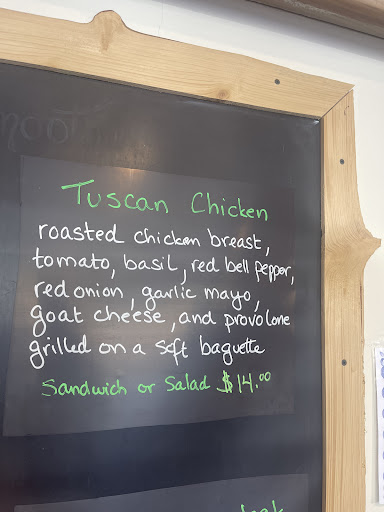 Tuscan Chicken
roasted chicken breast,
tomato, basil, red bell pepper,
red onion, garlic mayo,
goat cheese, and provolone
grilled on a soft baguette
Sandwich or Salad $14.00